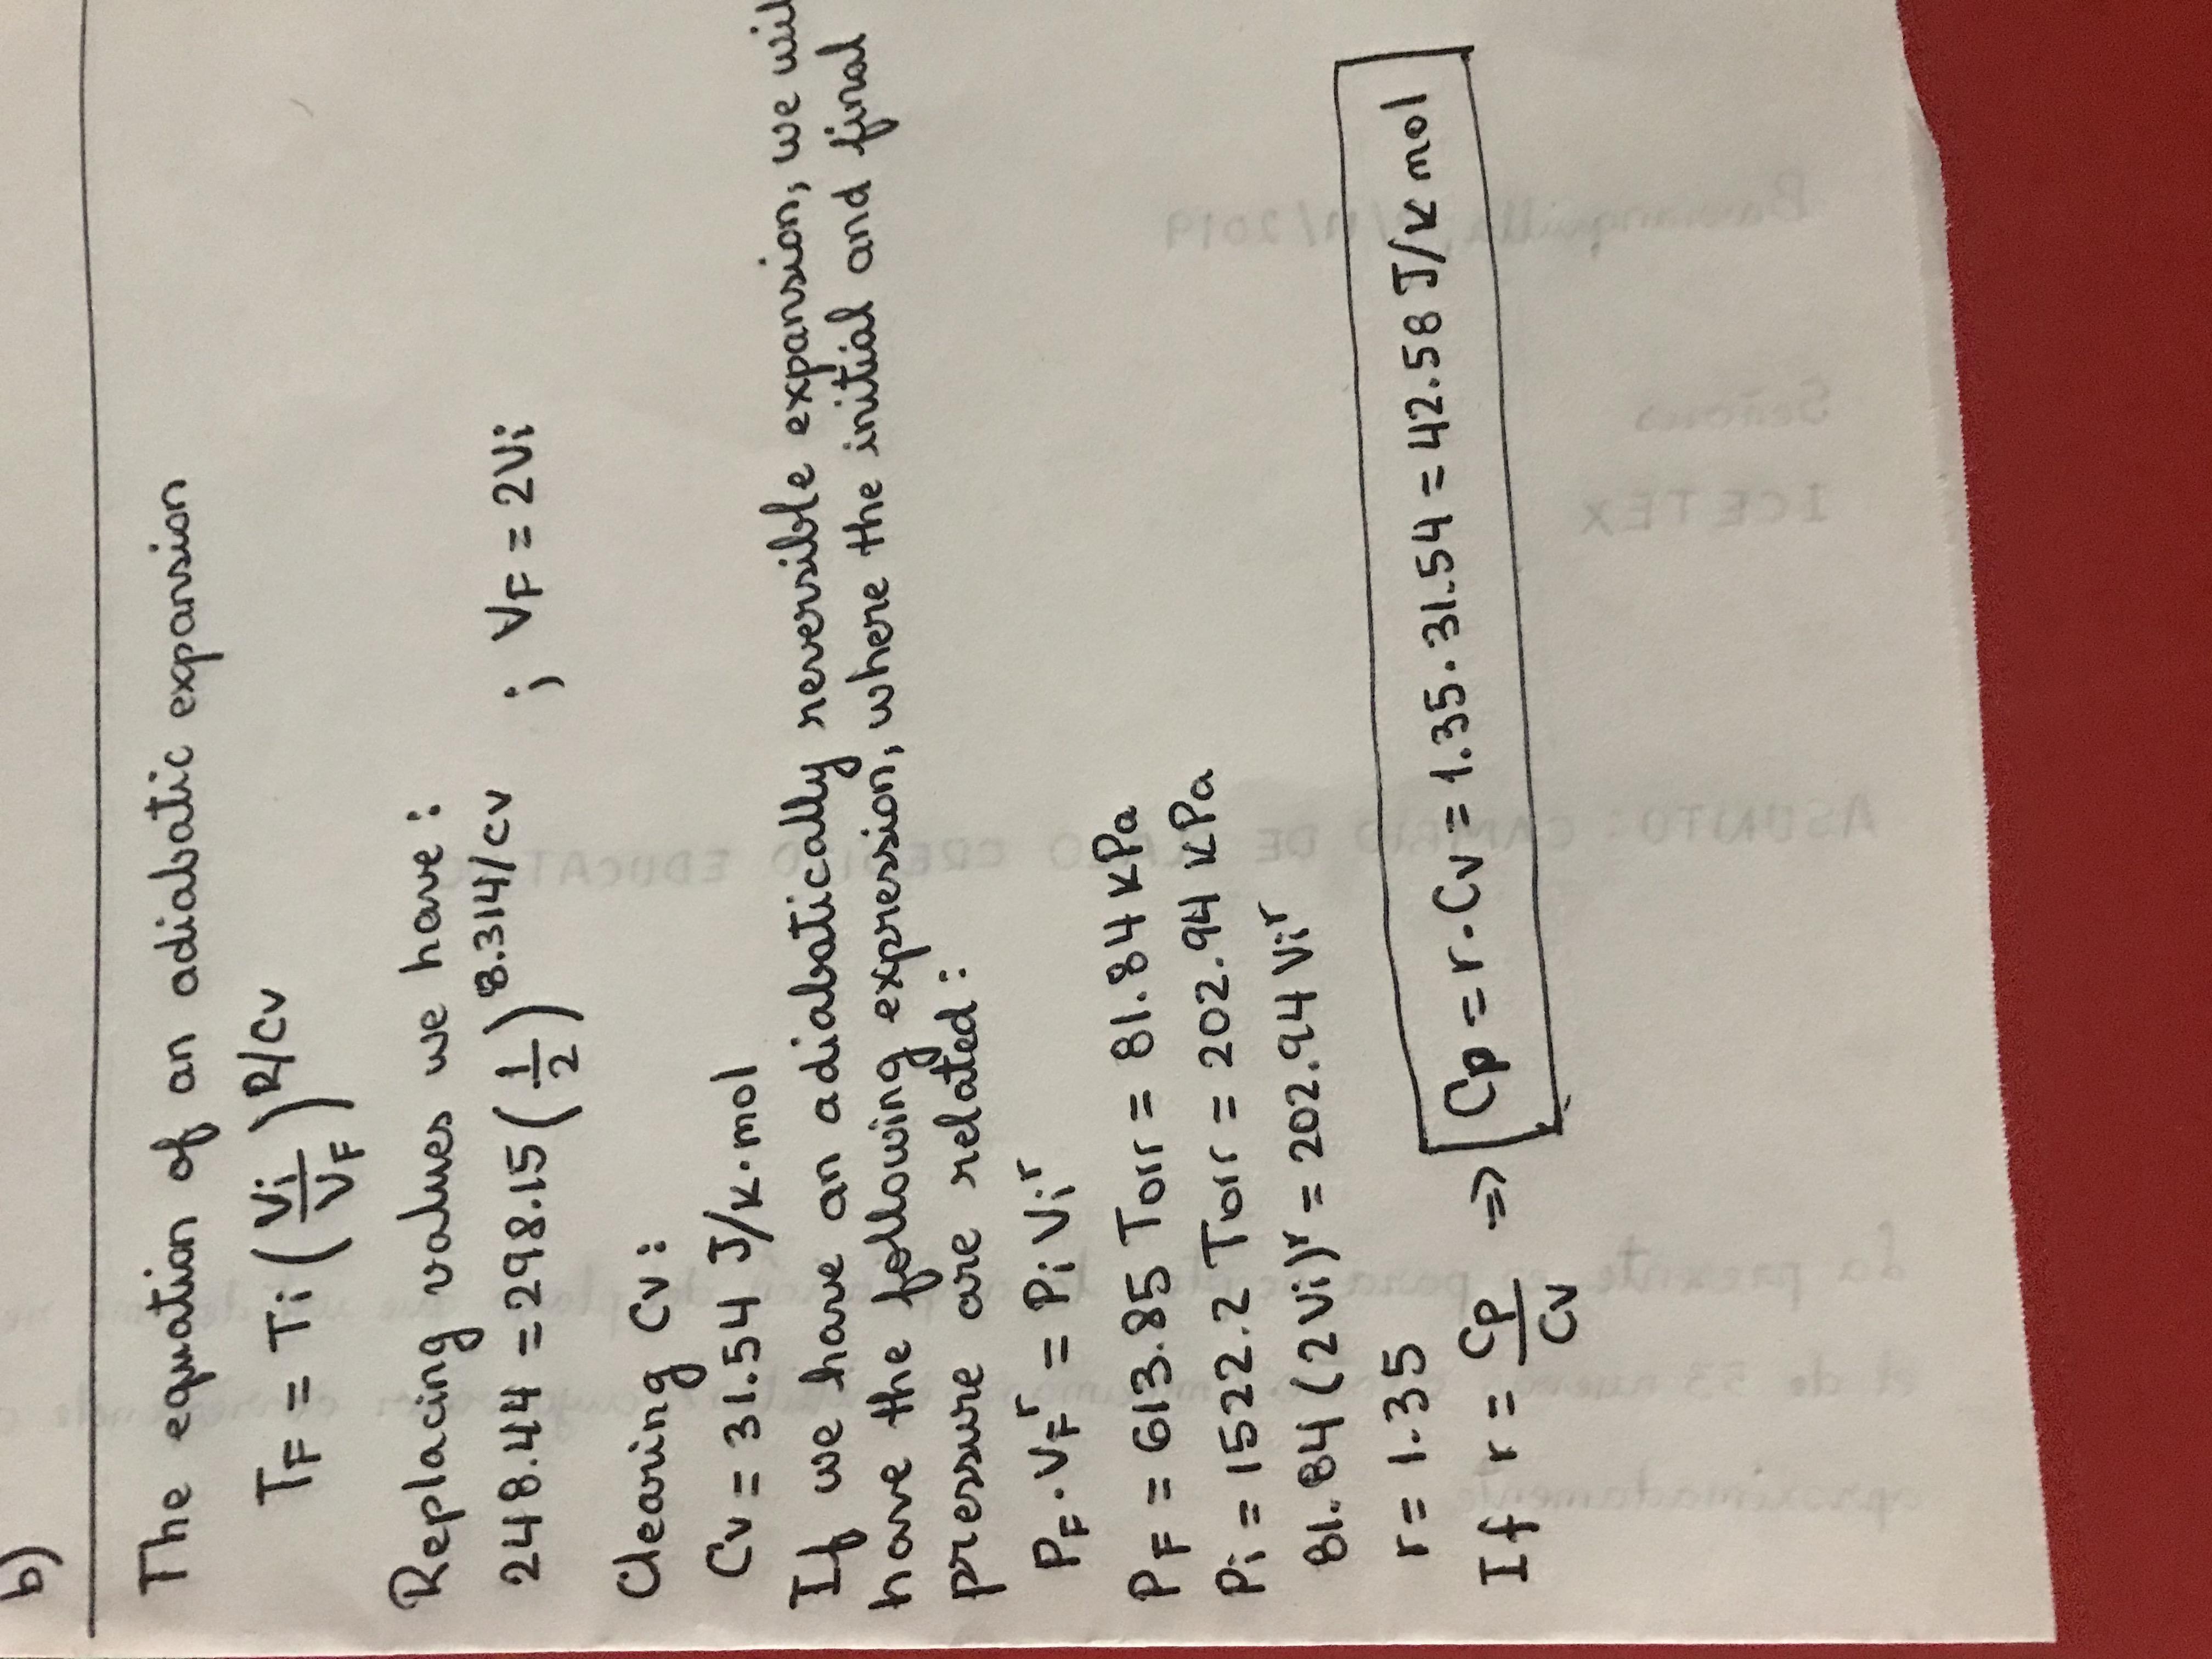 b)
The equation of an adiabatic expansion
TF = Ti (Vi/VF)^R/Cv
Replacing values we have:
248.44 = 298.15 (1/2)^8.314/Cv ; VF = 2Vi
Clearing Cv:
Cv = 31.54 J/K·mol
If we have an adiabatically reversible expansion, we wil
have the following expression, where the initial and final
pressure are related:
PF · VF^r = Pi Vi^r
PF = 613.85 Torr = 81.84 KPa
Pi = 1522.2 Torr = 202.94 KPa
81.84 (2Vi)^r = 202.94 Vi^r
r = 1.35
If r = Cp/Cv => Cp = r · Cv = 1.35 · 31.54 = 42.58 J/K mol
Barranquilla, /11/2019
Señores
ICETEX
ASUNTO: CAMBIO DE CREDITO EDUCATIVO
La presente es para
el de 53 nuevos
aproximadamente